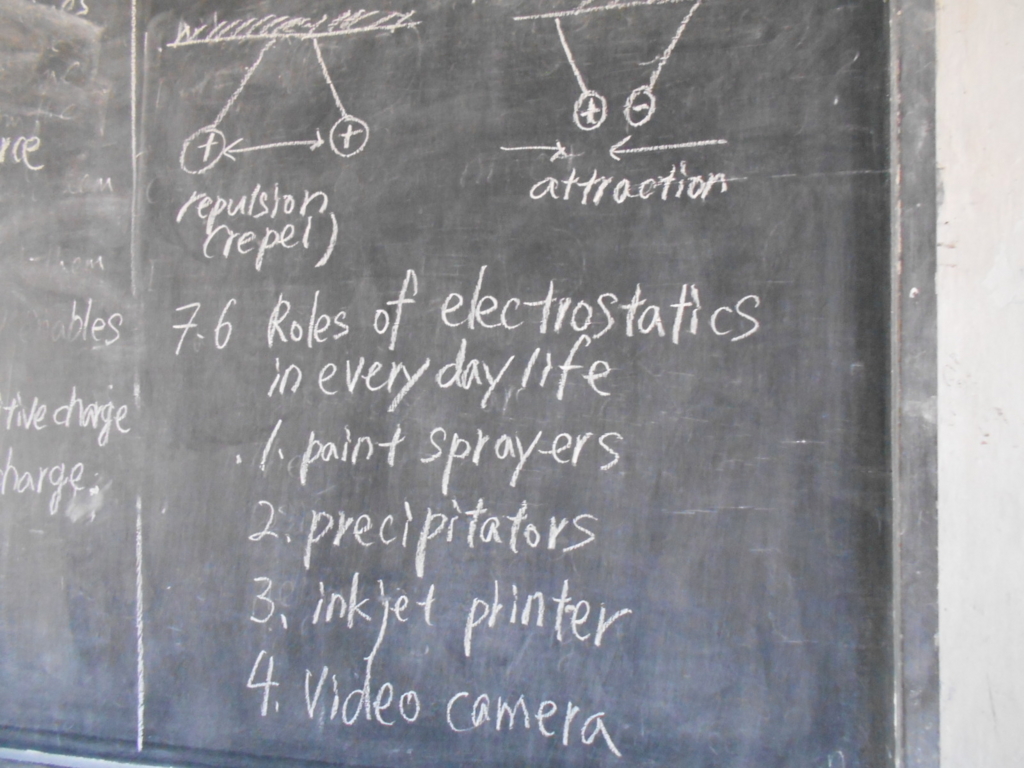 rce
tive charge
harge.
+ +
repulsion
(repel)
+ -
attraction
7.6 Roles of electrostatics
in every day life
1. paint sprayers
2. precipitators
3. inkjet printer
4. Video camera